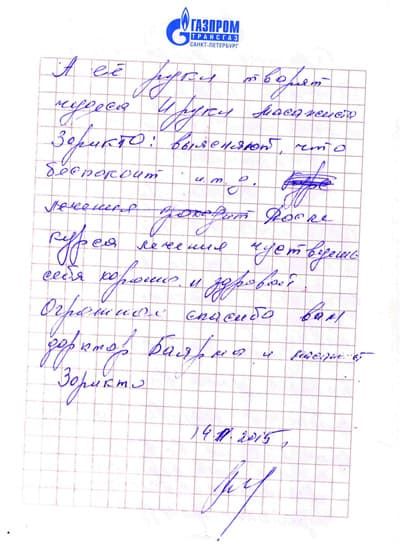 ГАЗПРОМ
ТРАНСГАЗ
САНКТ-ПЕТЕРБУРГ
А её руки творят
чудеса И руки масажиста
Зорикто: выясняют, что
беспокоит и.т.д. курс
лечения проходит После
курса лечения чуствуешь
себя хорошо и здоровой.
Огромных спасибо вам
дорктор Баярма и
Зорикто
2015,